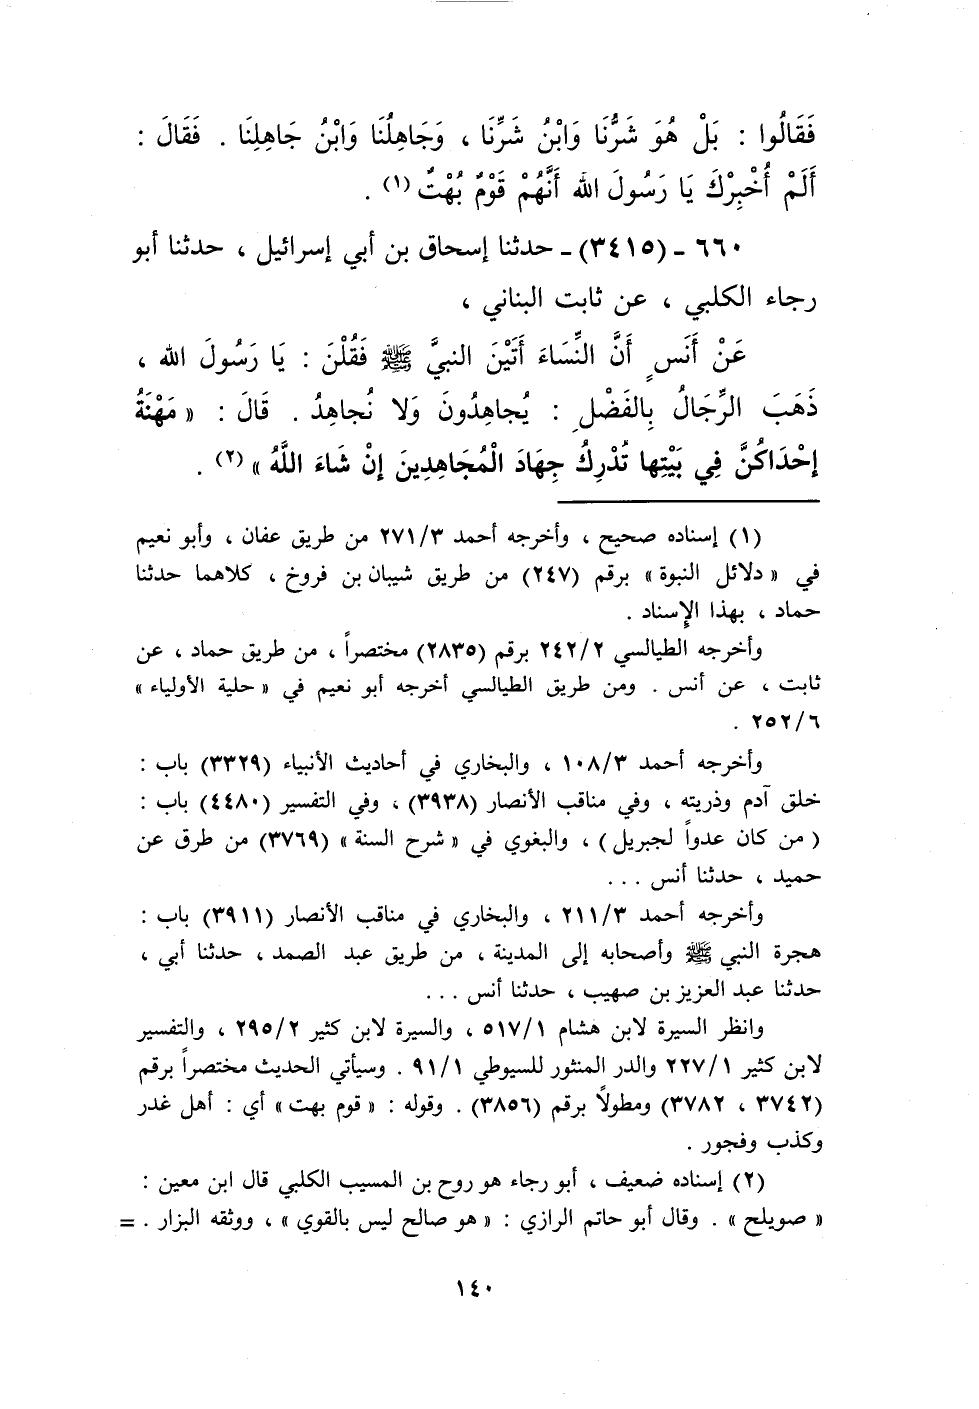 فَقَالُوا : بَلْ هُوَ شَرُّنَا وَابْنُ شَرِّنَا ، وَجَاهِلُنَا وَابْنُ جَاهِلِنَا . فَقَالَ :
أَلَمْ أُخْبِرْكَ يَا رَسُولَ الله أَنَّهُمْ قَوْمٌ بُهْتٌ (١) .
٦٦٠ - (٣٤١٥) - حدثنا إسحاق بن أبي إسرائيل ، حدثنا أبو
رجاء الكلبي ، عن ثابت البناني ،
عَنْ أَنَسٍ أَنَّ النِّسَاءَ أَتَيْنَ النبيَّ ﷺ فَقُلْنَ : يَا رَسُولَ الله ،
ذَهَبَ الرِّجَالُ بِالفَضْلِ : يُجاهِدُونَ وَلا نُجاهِدُ . قَالَ : « مَهْنَةُ
إحْدَاكُنَّ فِي بَيْتِها تُدْرِكُ جِهَادَ الْمُجَاهِدِينَ إنْ شَاءَ اللَّهُ » (٢) .
(١) إسناده صحيح ، وأخرجه أحمد ٢٧١/٣ من طريق عفان ، وأبو نعيم
في « دلائل النبوة » برقم (٢٤٧) من طريق شيبان بن فروخ ، كلاهما حدثنا
حماد ، بهذا الإسناد .
وأخرجه الطيالسي ٢٤٢/٢ برقم (٢٨٣٥) مختصراً ، من طريق حماد ، عن
ثابت ، عن أنس . ومن طريق الطيالسي أخرجه أبو نعيم في « حلية الأولياء »
٢٥٢/٦ .
وأخرجه أحمد ١٠٨/٣ ، والبخاري في أحاديث الأنبياء (٣٣٢٩) باب :
خلق آدم وذريته ، وفي مناقب الأنصار (٣٩٣٨) ، وفي التفسير (٤٤٨٠) باب :
( من كان عدواً لجبريل ) ، والبغوي في « شرح السنة » (٣٧٦٩) من طرق عن
حميد ، حدثنا أنس ...
وأخرجه أحمد ٢١١/٣ ، والبخاري في مناقب الأنصار (٣٩١١) باب :
هجرة النبي ﷺ وأصحابه إلى المدينة ، من طريق عبد الصمد ، حدثنا أبي ،
حدثنا عبد العزيز بن صهيب ، حدثنا أنس ...
وانظر السيرة لابن هشام ٥١٧/١ ، والسيرة لابن كثير ٢٩٥/٢ ، والتفسير
لابن كثير ٢٢٧/١ والدر المنثور للسيوطي ٩١/١ . وسيأتي الحديث مختصراً برقم
(٣٧٤٢ ، ٣٧٨٢) ومطولاً برقم (٣٨٥٦) . وقوله : « قوم بهت » أي : أهل غدر
وكذب وفجور .
(٢) إسناده ضعيف ، أبو رجاء هو روح بن المسيب الكلبي قال ابن معين :
« صويلح » . وقال أبو حاتم الرازي : « هو صالح ليس بالقوي » ، ووثقه البزار . =
١٤٠